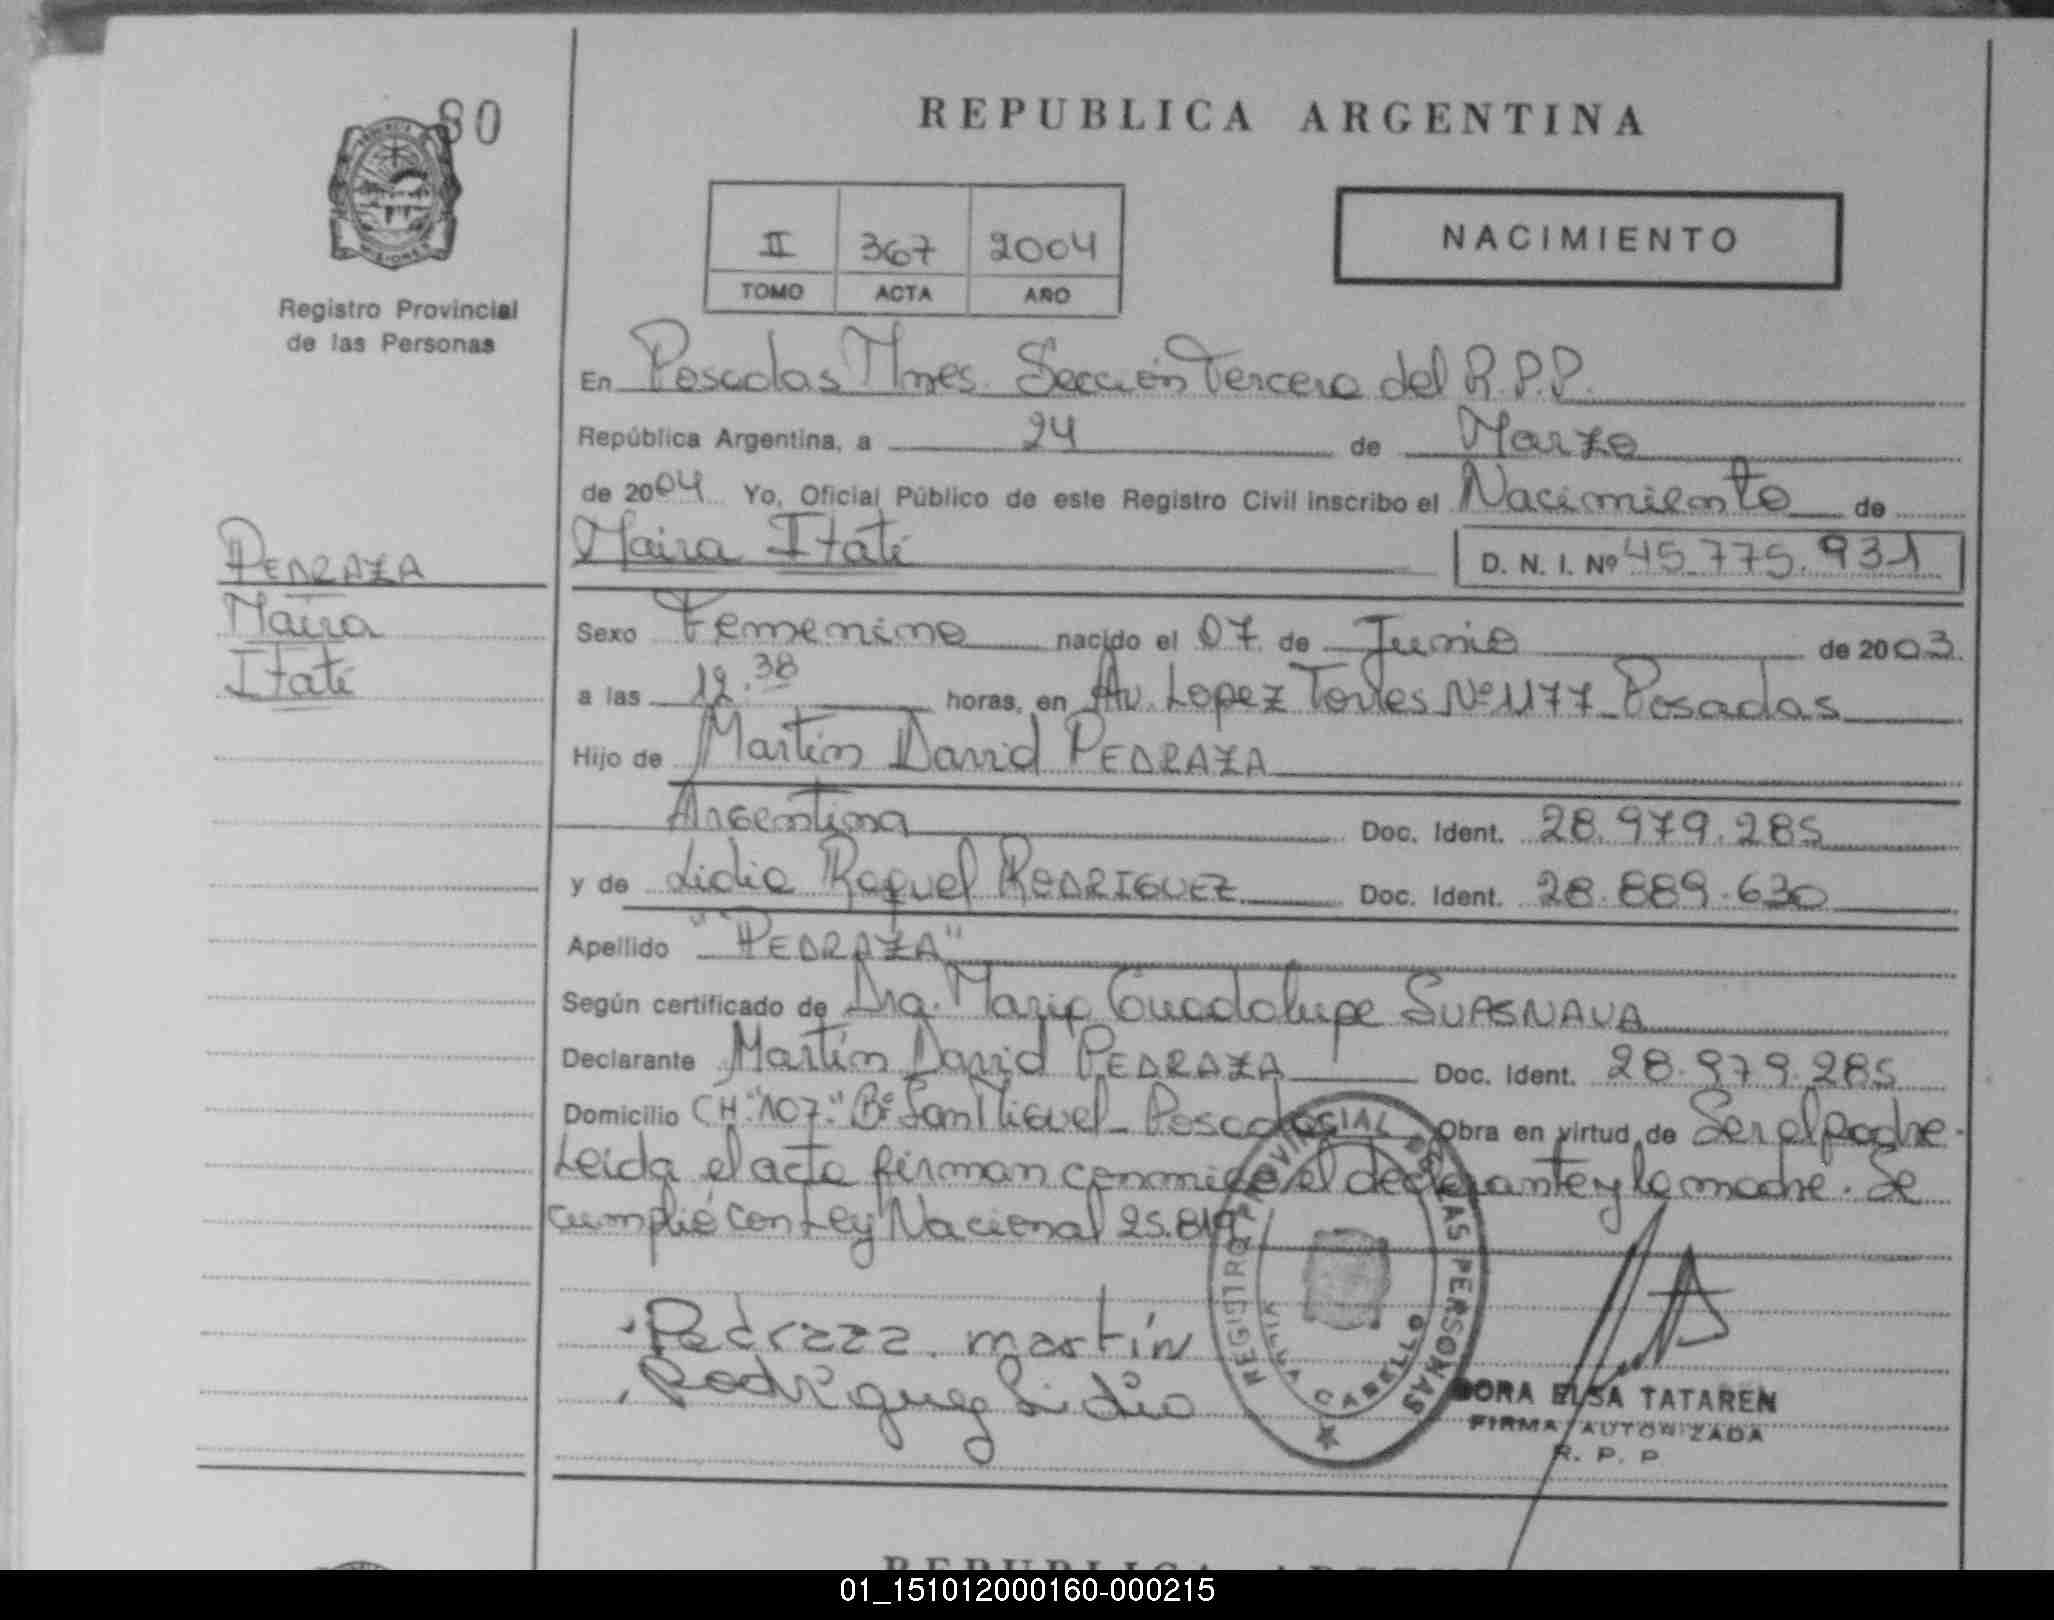 80
REPUBLICA ARGENTINA
II 367 2004
TOMO ACTA AÑO
NACIMIENTO
Registro Provincial
de las Personas
En Posadas Mnes. Sección Tercera del R.P.P.
República Argentina, a 24 de Marzo
de 2004 Yo, Oficial Público de este Registro Civil inscribo el Nacimiento de
Maira Itatí D. N. I. Nº 45.775.931
PEDRAZA
Maira
Itatí
Sexo Femenino nacido el 07 de Junio de 2003
a las 12.38 horas, en Av. Lopez Torres Nº 1177 Posadas
Hijo de Martín David PEDRAZA
Argentina Doc. Ident. 28.979.285
y de Lidia Raquel RODRIGUEZ Doc. Ident. 28.889.630
Apellido "PEDRAZA"
Según certificado de Dra. María Guadalupe SUASNAVA
Declarante Martín David PEDRAZA Doc. Ident. 28.979.285
Domicilio CH."107." Bº San Miguel - Posadas Obra en virtud de Ser el padre.
Leida el acta firman conmigo el declarante y la madre. Se
cumplió con Ley Nacional 25.819
REGISTRO PROVINCIAL DE LAS PERSONAS
VILLA CABELLO
Pedraza martín
Rodríguez Lidia
DORA ELSA TATAREN
FIRMA AUTORIZADA
R. P. P
01_151012000160-000215